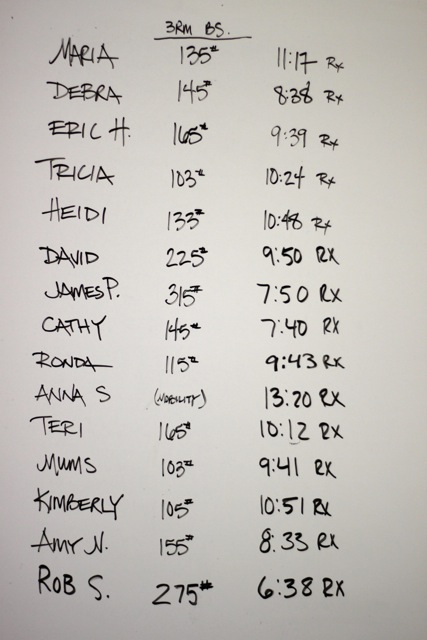 3RM BS.
MARIA 135# 11:17 Rx
DEBRA 145# 8:38 Rx
ERIC H. 165# 9:39 Rx
TRICIA 103# 10:24 Rx
HEIDI 133# 10:48 Rx
DAVID 225# 9:50 RX
JAMES P. 315# 7:50 RX
CATHY 145# 7:40 RX
RONDA 115# 9:43 RX
ANNA S (MOBILITY) 13:20 RX
TERI 165# 10:12 RX
MUMS 103# 9:41 RX
KIMBERLY 105# 10:51 RX
AMY N. 155# 8:33 RX
ROB S. 275# 6:38 RX